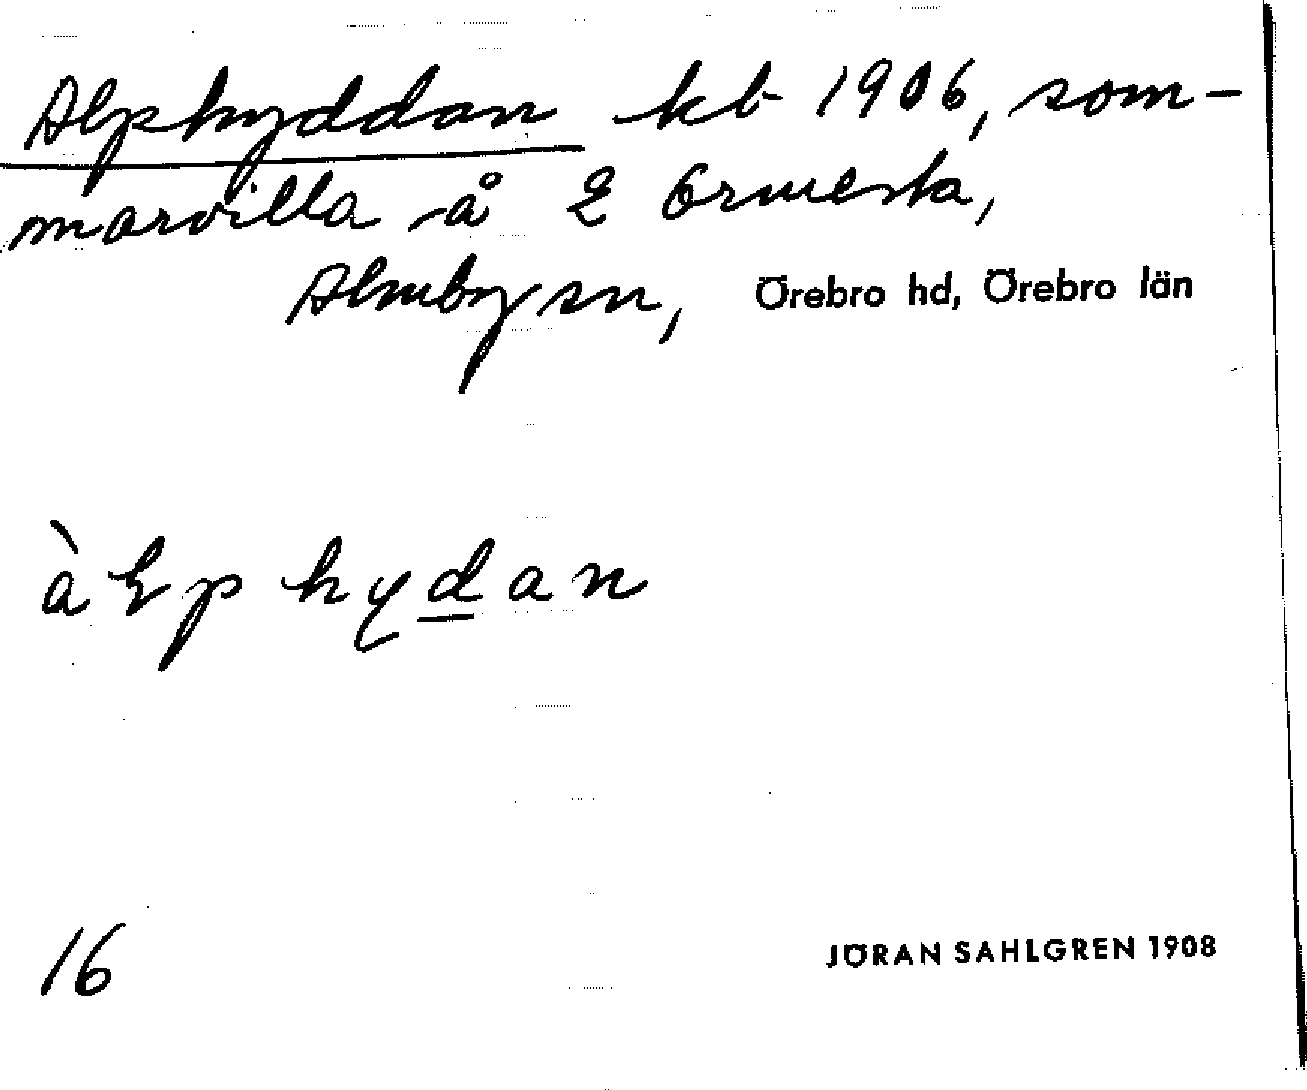 Alphyddan kb 1906, som-
marvilla å 2 Ormesta,
Almby sn, Örebro hd, Örebro län
àlp hydan
16
JÖRAN SAHLGREN 1908